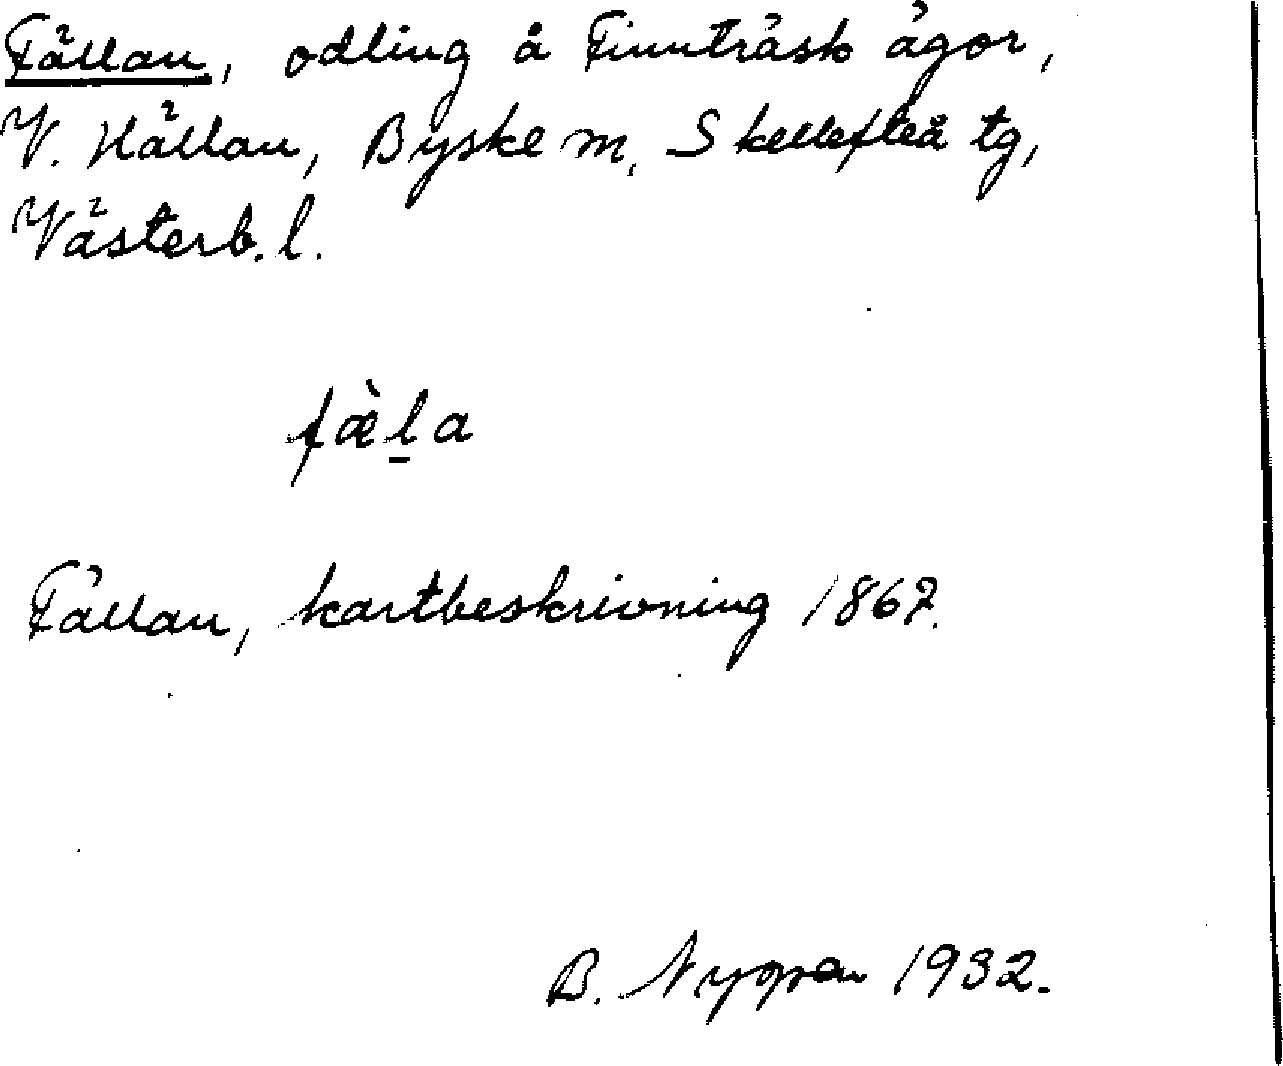 Fällan, odling å Finnträsk ägor,
V. Hällan, Byske m, Skellefteå tg,
Västerb. l.
fæ̀l̠a
Fällan, kartbeskrivning 1867.
B. Nygren 1932.